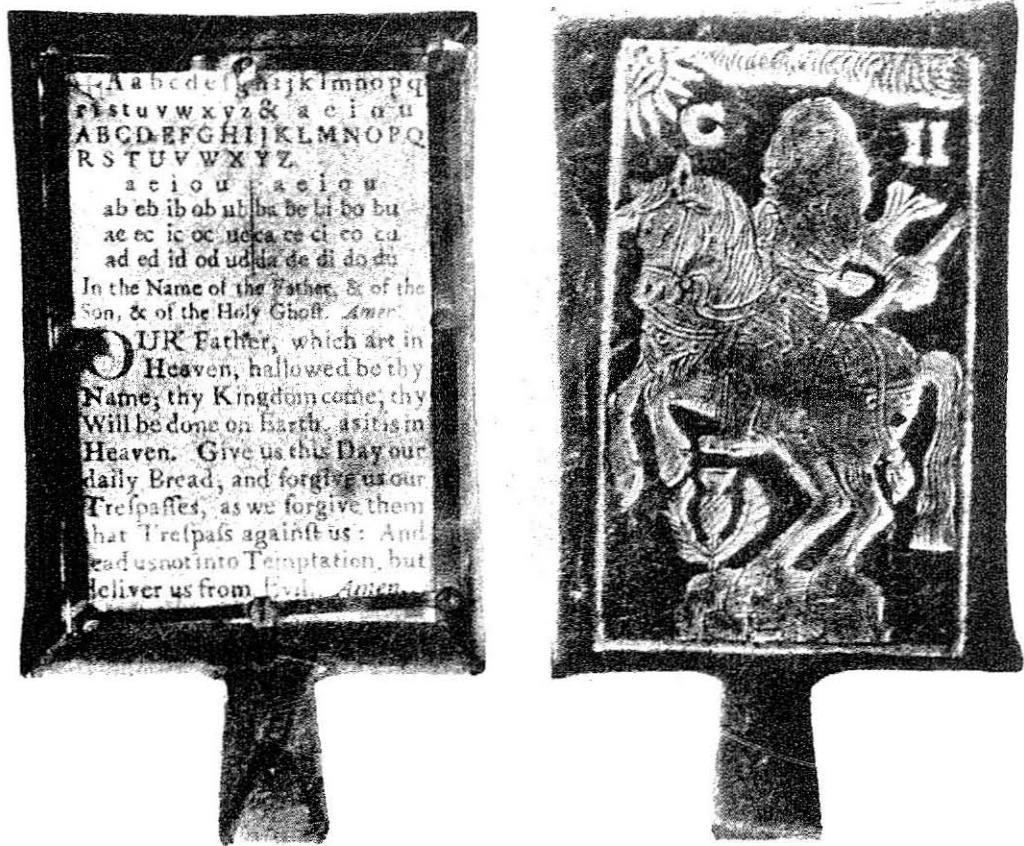 A a b c d e f g h i j k l m n o p q
r ſ s t u v w x y z & a e i o u
A B C D E F G H I J K L M N O P Q
R S T U V W X Y Z
a e i o u a e i o u
ab eb ib ob ub ba be bi bo bu
ac ec ic oc uc ca ce ci co cu
ad ed id od ud da de di do du
In the Name of the Father, & of the
Son, & of the Holy Ghoſt. Amen.
OUR Father, which art in
Heaven, hallowed be thy
Name; thy Kingdom come, thy
Will be done on Earth, as it is in
Heaven. Give us this Day our
daily Bread; and forgive us our
Treſpaſſes, as we forgive them
that Treſpaſs againſt us: And
lead us not into Temptation, but
deliver us from Evil. Amen.
C II